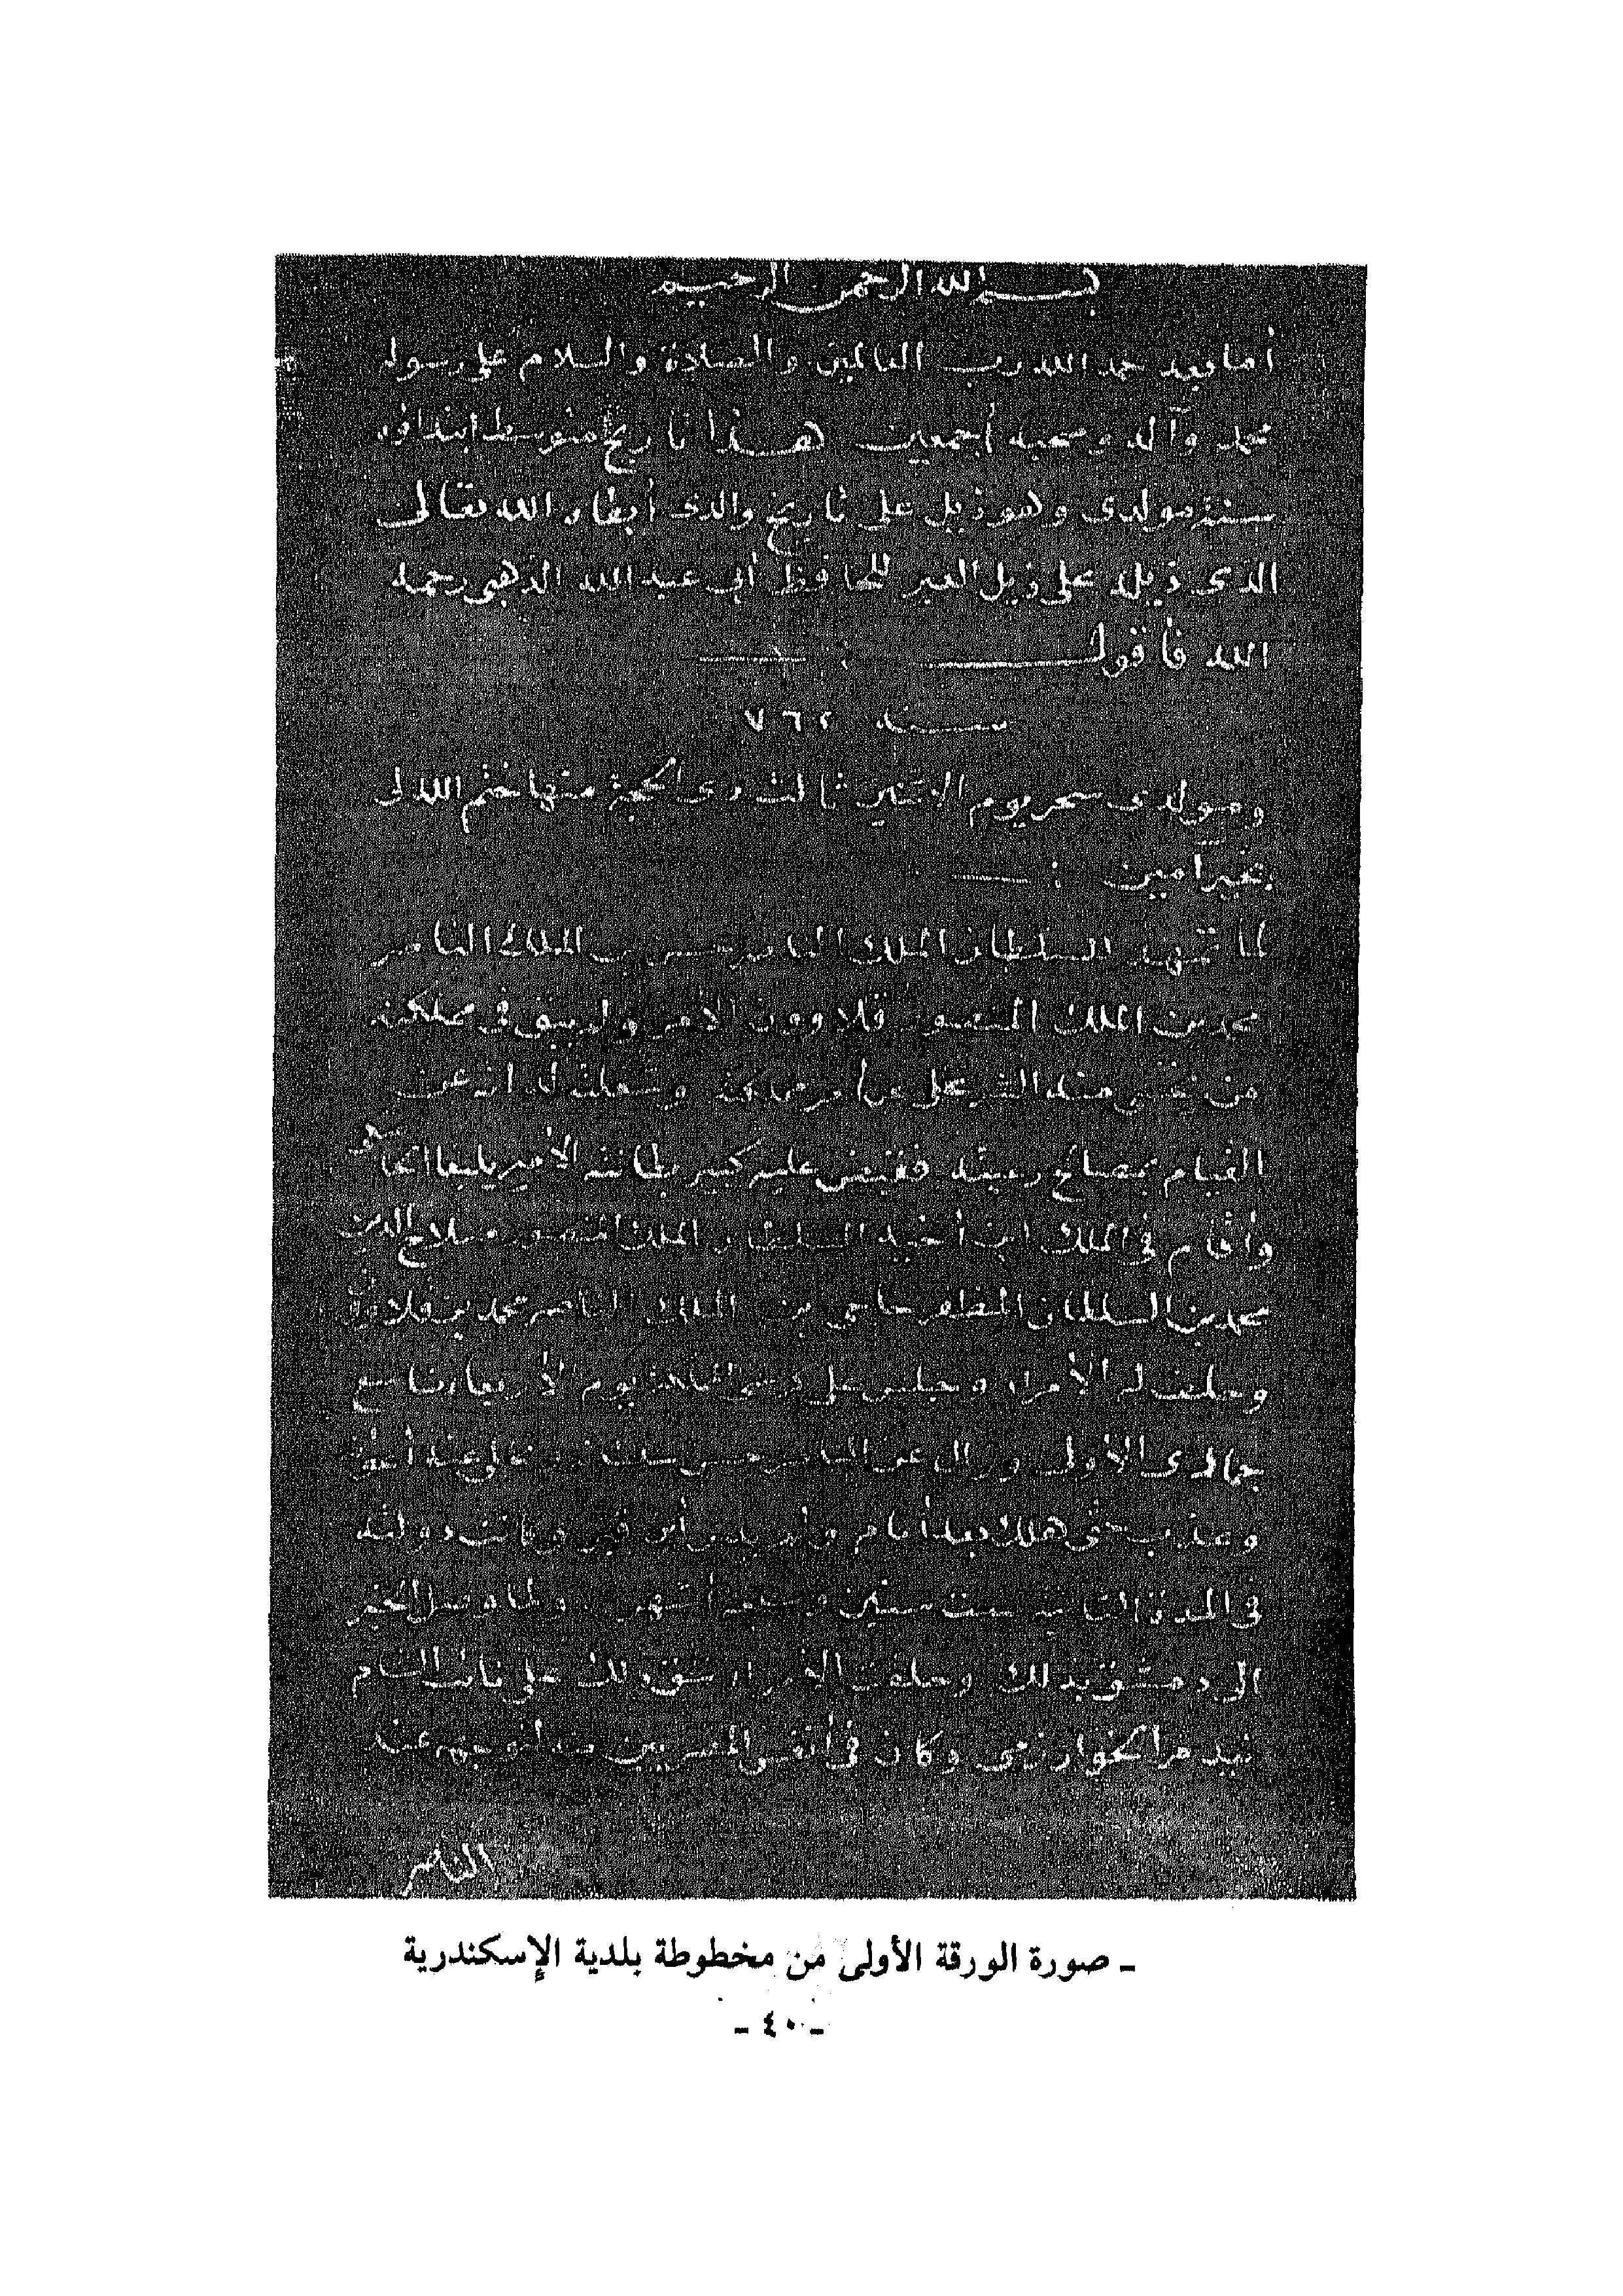 بسم الله الرحمن الرحيم
أما بعد حمد الله رب العالمين والصلاة والسلام على رسوله
محمد وآله وصحبه أجمعين هذا تاريخ متوسط ابتداؤه
سنة مولدى وهو ذيل على تاريخ والدى أبقاه الله تعالى
الذى ذيله على ذيل العبر للحافظ أبى عبد الله الذهبى رحمه
الله فأقول :
سنة ٧٦٢
ومولدى سحر يوم الاثنين ثالث ذى الحجة منها ختم الله لى
بخير امين :
لما تمهد للسلطان الملك الناصر حسن بن الملك الناصر
محمد بن الملك المنصور قلاوون الأمر ولم يبق فى مملكته
من يخشى منه
القيام بمصالح رعيته فقبض عليه كبير بطانته الأمير يلبغا الخاصكى
وأقام فى الملك ابن أخيه السلطان الملك المنصور صلاح الدين
محمد بن السلطان المظفر حاجى بن الملك الناصر محمد بن قلاوون
وحلف له الأمراء وجلس على يوم الأربعاء تاسع
جمادى الأولى وزال عن الناصر حسن ملكه
وعذب حتى هلك بعد أيام ولم يدر أين قبر وكانت دولته
فى المدة الثانية ست سنين وسبعة أشهر ولما وصل الخبر
الى دمشق بذلك وحلفت الأمراء شق ذلك على نائب الشام
بيدمر الخوارزمى وكان فى أنفس المصريين منه لتوجهه عن
الناصر
- صورة الورقة الأولى من مخطوطة بلدية الإسكندرية
- ٤٠ -